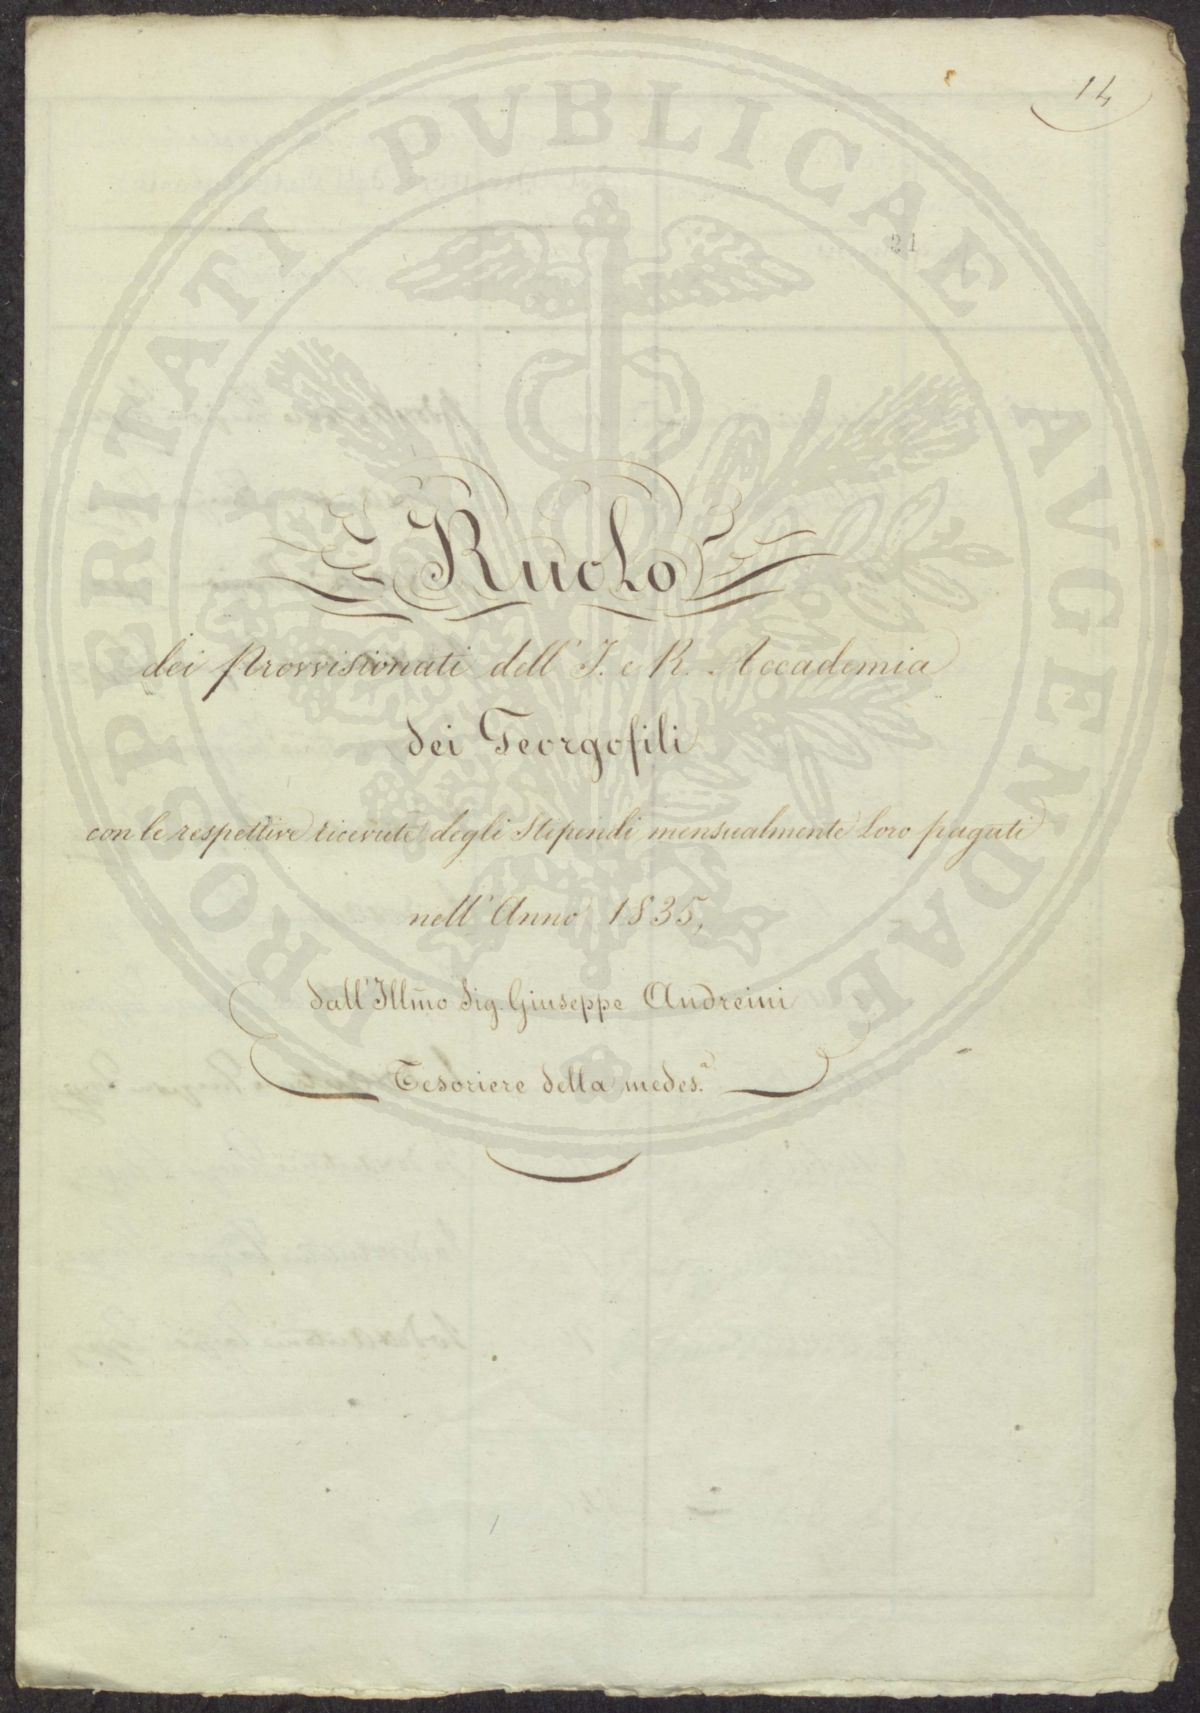 14
21
PROSPERITATI PVBLICAE AVGENDAE
Ruolo
dei Provvisionati dell' I. e R. Accademia
dei Georgofili
con le respettive ricevute degli Stipendi mensualmente Loro pagati
nell' Anno 1835,
dall' Illm̃o Sig. Giuseppe Andreini
Tesoriere della medes.ª